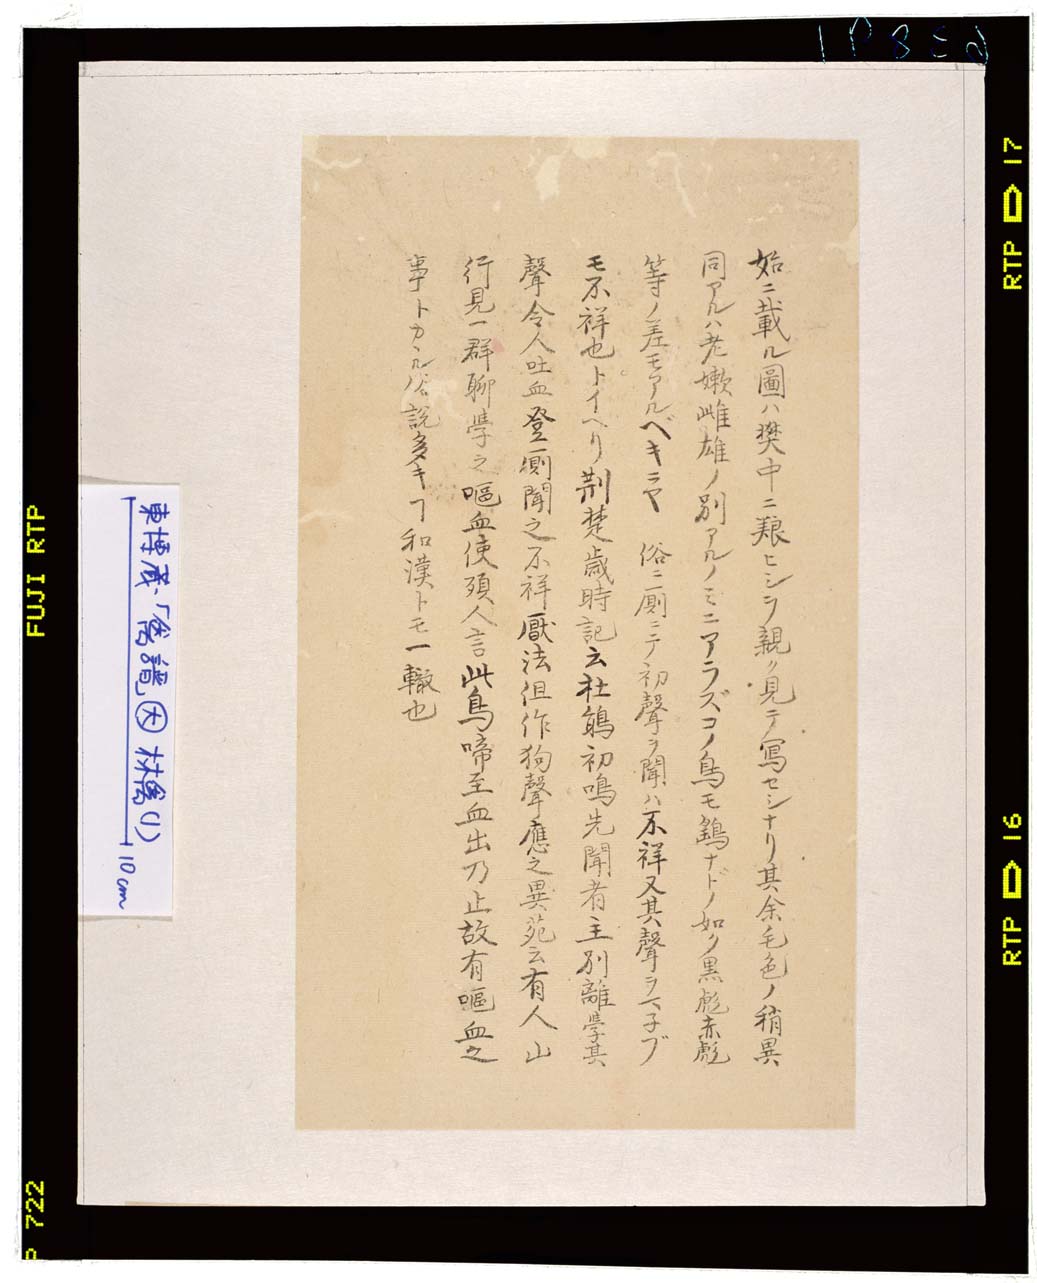 始ニ載ル圖ハ樊中ニ粮ヒシヲ親ク見テ写セシナリ其余毛色ノ稍異
同アルハ老嫩雌雄ノ別アルノミニアラズコノ鳥モ鷂ナドノ如ク黒彪赤彪
等ノ差モアルベキニヤ 俗ニ厠ニテ初聲ヲ聞ハ不祥又其聲ヲマ子ブ
モ不祥也トイヘリ荆楚歳時記云杜鵑初鳴先聞者主別離學其
聲令人吐血登厠聞之不祥厭法但作狗聲應之異苑云有人山
行見一群聊學之嘔血使殞人言此鳥啼至血出乃止故有嘔血之
事トカヽル俗説多キヿ和漢トモ一轍也
東博蔵・「禽譜」大 林禽(1)
10cm
FUJI RTP
RTP 17
RTP 16
P 722